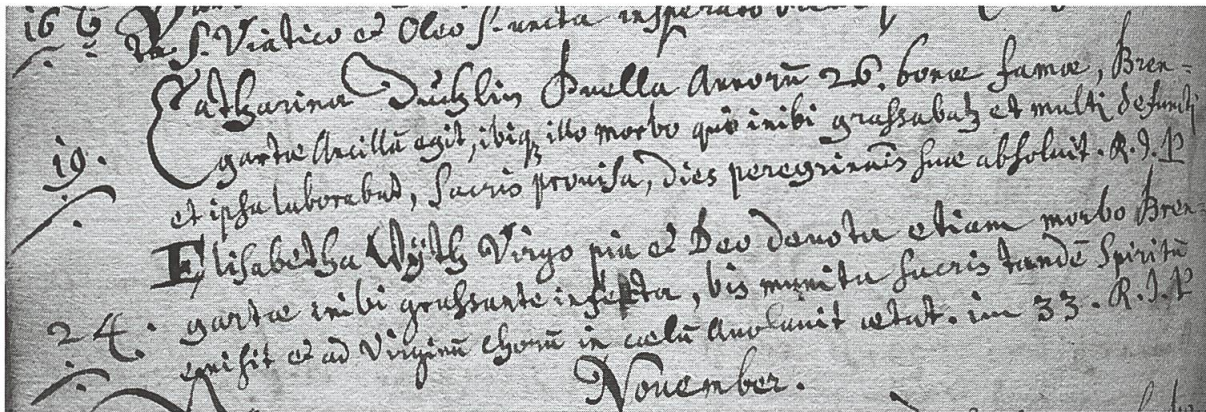 16
S. Viatico et Oleo S. uncta insperato
Catharina Dublin Puella Annorū 26. bonæ famæ, Bren=
19. gartæ Ancillā egit, ibiq illo morbo qui inibi grassabatz et multi defuncti
et ipsa laborabat, Sacris provisa, dies peregrinaōis suæ absoluit. R. I. P
Elisabetha Wÿth Virgo pia et Deo devota etiam morbo Brem=
24. gartæ inibi grassante infecta, bis munita sacris tandē Spiritū
emisit et ad Virginū chorū in cœlū Avolavit ætat. im 33. R. I. P
November.